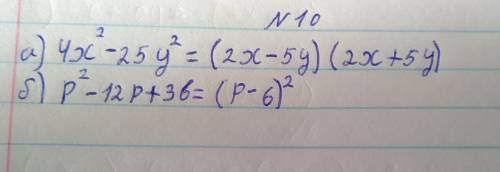 N10
а) 4x² - 25y² = (2x - 5y) (2x + 5y)
б) p² - 12p + 36 = (p - 6)²